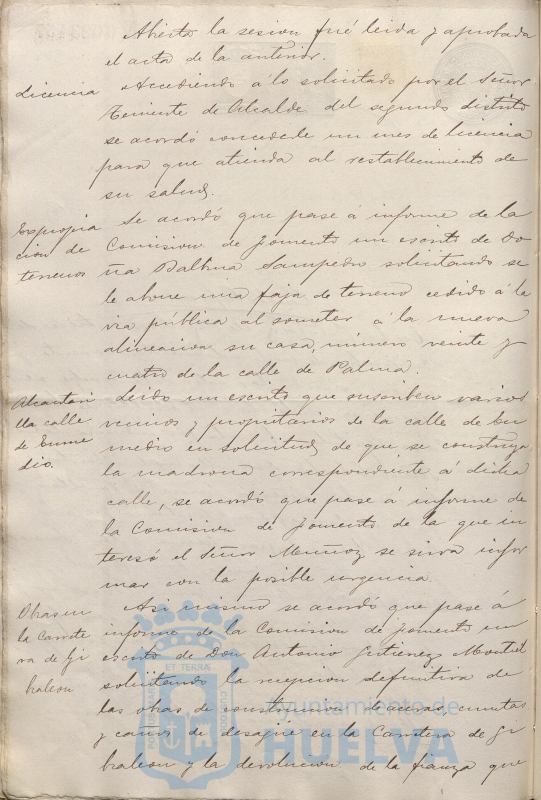 Abierta la sesion fué leida y aprobada
el acta de la anterior.
Licencia
Accediendo á lo solicitado por el Señor
Teniente de Alcalde del segundo distrito
se acordó concederle un mes de licencia
para que atienda al restablecimiento de
su salud.
Expropia
cion de
terrenos
Se acordó que pase á informe de la
Comision de fomento un escrito de Do
ña Balbina Sampedro solicitando se
le abone una faja de terreno cedido á la
via pública al someter á la nueva
alineacion su casa, número veinte y
cuatro de la calle de Palma.
Alcantari
lla calle
de Enme
dio.
Leido un escrito que suscriben varios
vecinos y propietarios de la calle de En
medio en solicitud de que se construya
la madrona correspondiente á dicha
calle, se acordó que pase á informe de
la Comision de fomento de la que in
teresó el Señor Muñoz se sirva infor
mar con la posible urgencia.
Obras en
la Carrete
ra de Gi
braleon
Asi mismo se acordó que pase á
informe de la Comision de fomento un
escrito de Don Antonio Gutierrez Montiel
solicitando la recepcion definitiva de
las obras de construccion de aceras, cunetas
y caños de desagüe en la Carretera de Gi
braleon y la devolucion de la fianza que
PORTUS MARIS ET TERRAE CUSTODIA
Ayuntamiento de
HUELVA